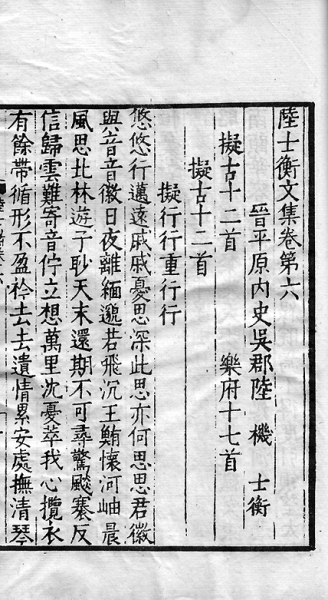 陸士衡文集卷第六
晉平原内史吳郡陸機士衡
擬古十二首 樂府十七首
擬古十二首
擬行行重行行
悠悠行邁遠戚戚憂思深此思亦何思思君徽
與音音徽日夜離緬邈若飛沉王鮪懷河岫晨
風思北林遊子眇天末還期不可尋驚飈褰反
信歸雲難寄音佇立想萬里沈憂萃我心攬衣
有餘帶循形不盈衿去去遺情累安處撫清琴